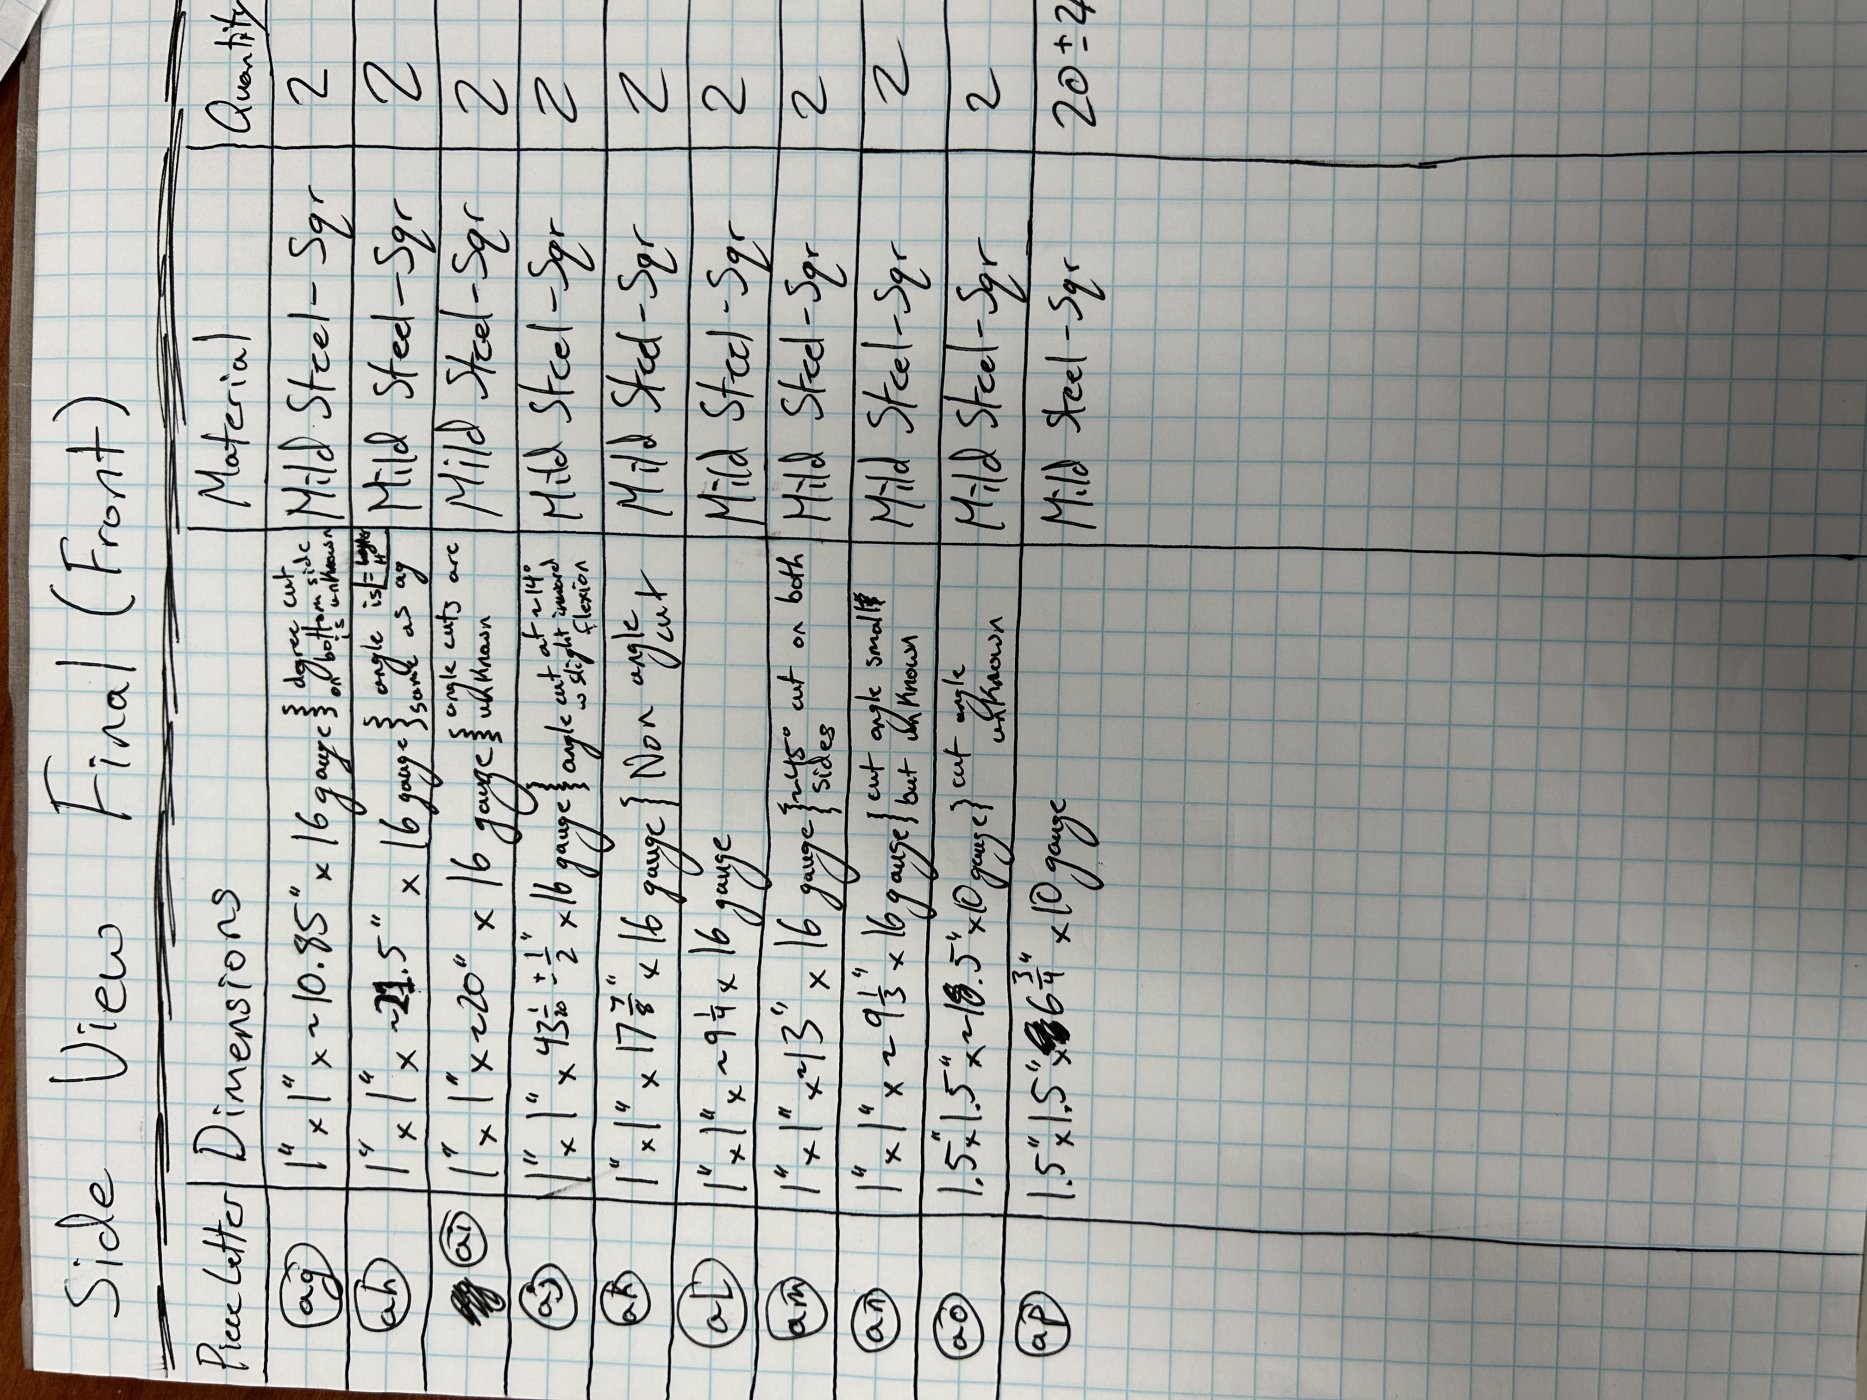 Side View Final (Front)
Piece Letter Dimensions Material Quantity
ag 1" x 1" x ~10.85" x 16 gauge } degree cut on bottom side is unknown Mild Steel - Sqr 2
ah 1" x 1" x ~21.5" x 16 gauge } angle is same as ag Mild Steel - Sqr 2
ai 1" x 1" x ~20" x 16 gauge } angle cuts are unknown Mild Steel - Sqr 2
aj 1" x 1" x 43 1/20 ± 1/2" x 16 gauge } angle cut at ~14° w slight inward flexion Mild Steel - Sqr 2
ak 1" x 1" x 17 7/8" x 16 gauge } Non angle cut Mild Steel - Sqr 2
al 1" x 1" x ~9 1/4 x 16 gauge Mild Steel - Sqr 2
am 1" x 1" x ~13" x 16 gauge } ~45° cut on both sides Mild Steel - Sqr 2
an 1" x 1" x ~9 1/3" x 16 gauge } cut angle small but unknown Mild Steel - Sqr 2
ao 1.5" x 1.5" x ~18.5" x 10 gauge } cut angle unknown Mild Steel - Sqr 2
ap 1.5" x 1.5" x 6 3/4" x 10 gauge Mild Steel - Sqr 20 ±